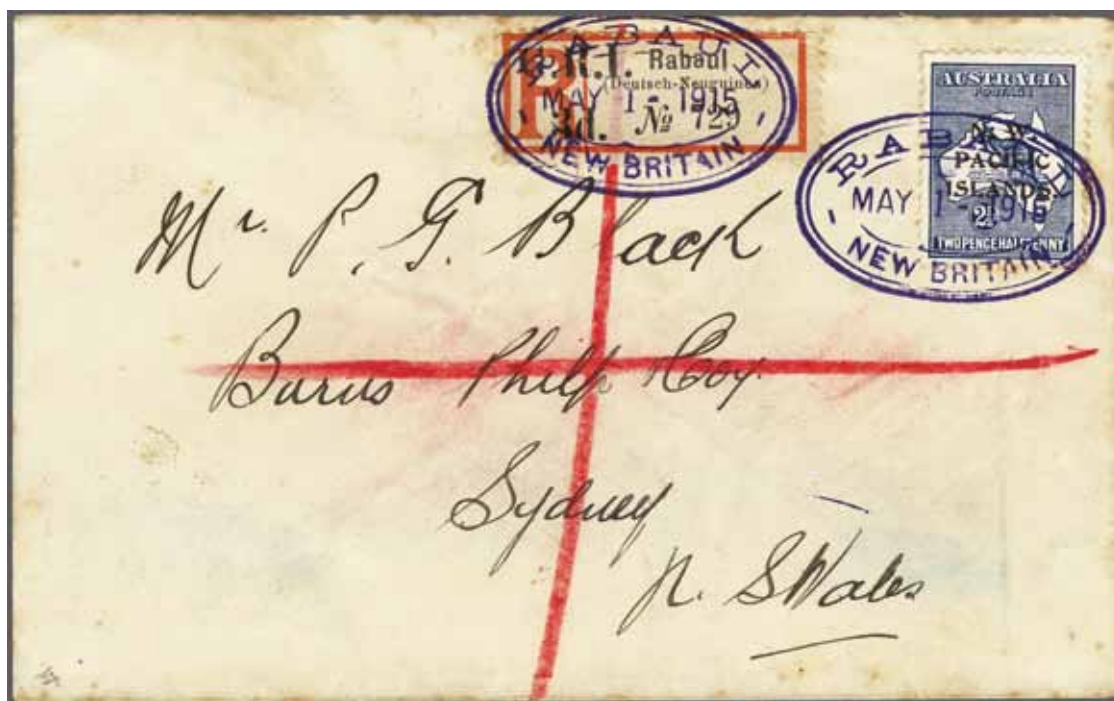 RABAUL
G.R.I. Rabaul
(Deutsch-Neuguinea)
MAY 1 - 1915
3d. No 729
NEW BRITAIN
AUSTRALIA
POSTAGE
N. W.
PACIFIC
ISLANDS.
2½
TWO PENCE HALF PENNY
RABAUL
MAY 1 - 1915
NEW BRITAIN
Mr. P. G. Black
Burns Philp Coy.
Sydney
N. S Wales